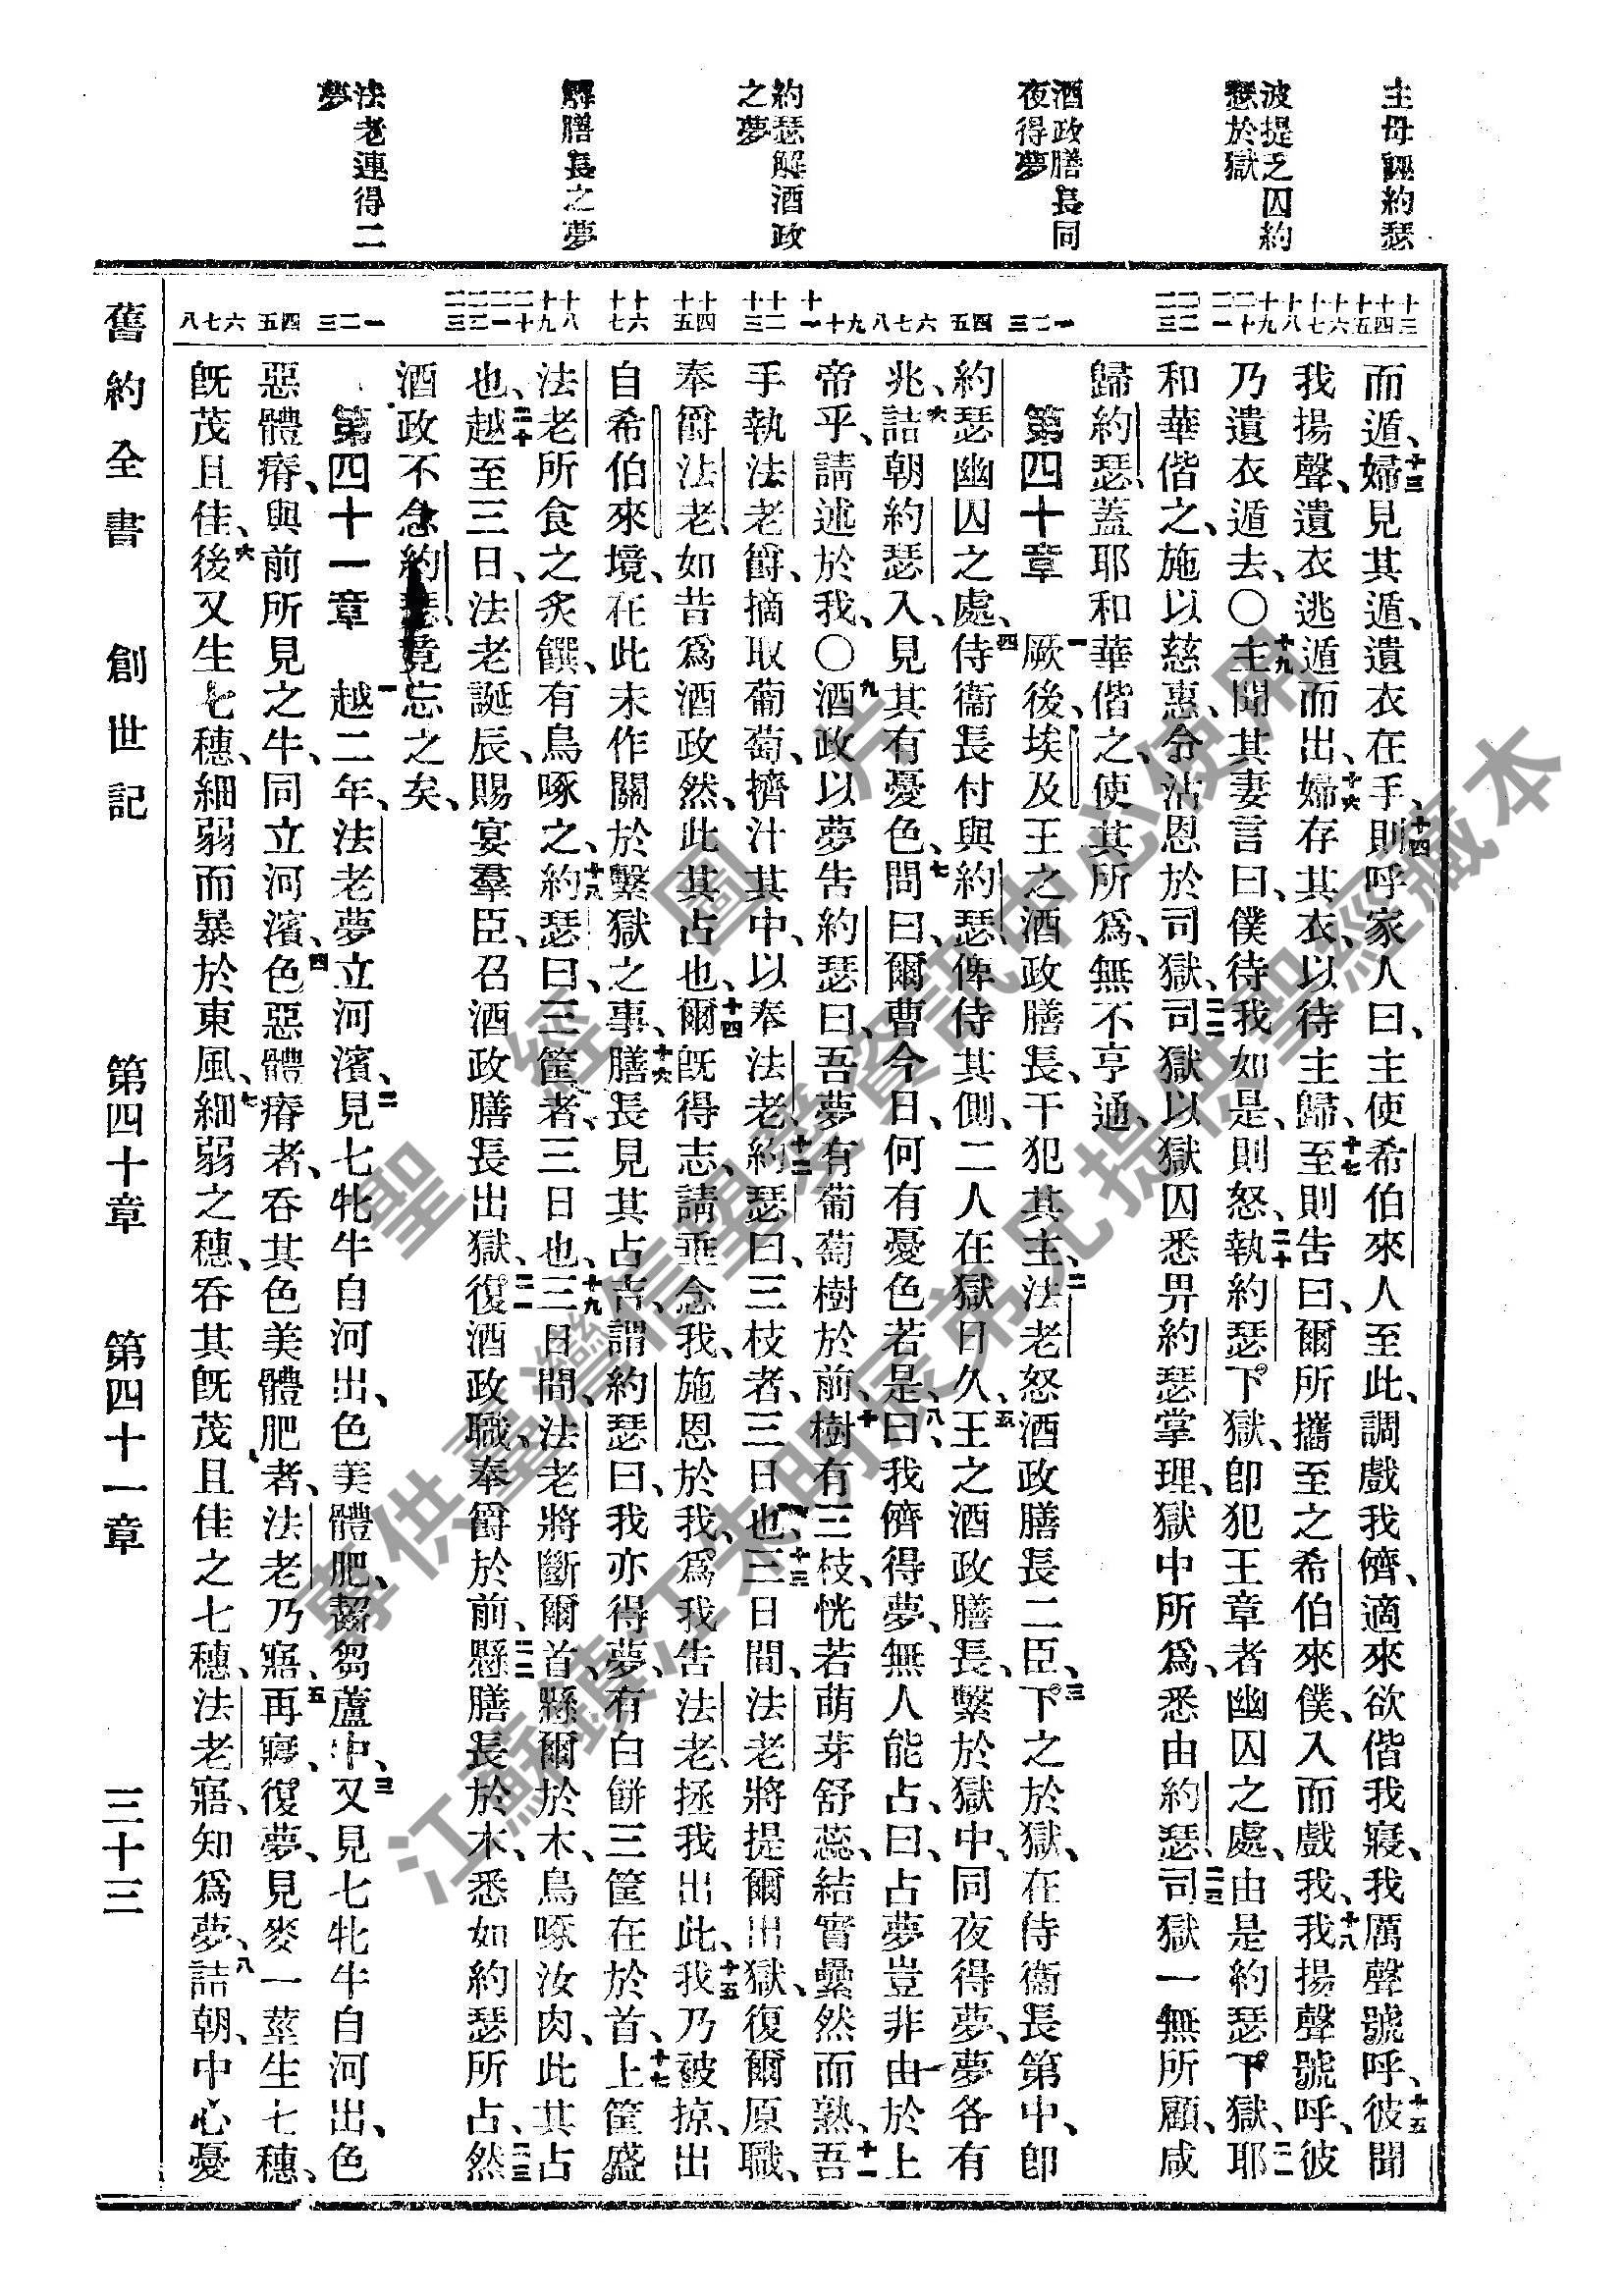 主母誣約瑟
波提乏囚約
瑟於獄
酒政膳長同
夜得夢
約瑟解酒政
之夢
解膳長之夢
法老連得二
夢
十三 十四 十五 十六 十七 十八 十九 二十 二一 二二 二三 一 二 三 四 五 六 七 八 九 十 十一 十二 十三 十四 十五 十六 十七 十八 十九 二十 二一 二二 二三 一 二 三 四 五 六 七 八
而遁、十三婦見其遁、遺衣在手、十四則呼家人曰、主使希伯來人至此、調戲我儕、適來欲偕我寢、我厲聲號呼、十五彼聞
我揚聲、遺衣逃遁而出、十六婦存其衣、以待主歸、十七至則告曰、爾所攜至之希伯來僕、入而戲我、十八我揚聲號呼、彼
乃遺衣遁去、○十九主聞其妻言曰、僕待我如是、則怒、二十執約瑟下獄、卽犯王章者幽囚之處、由是約瑟下獄、二一耶
和華偕之、施以慈惠、令沾恩於司獄、二二司獄以獄囚悉畀約瑟掌理、獄中所爲、悉由約瑟、二三司獄一無所顧、咸
歸約瑟、蓋耶和華偕之、使其所爲、無不亨通、
第四十章 一厥後、埃及王之酒政膳長、干犯其主、二法老怒酒政膳長二臣、三下之於獄、在侍衞長第中、卽
約瑟幽囚之處、四侍衞長付與約瑟、俾侍其側、二人在獄日久、五王之酒政膳長、繫於獄中、同夜得夢、夢各有
兆、六詰朝約瑟入、見其有憂色、七問曰、爾曹今日、何有憂色若是、八曰、我儕得夢、無人能占、曰、占夢豈非由於上
帝乎、請述於我、○九酒政以夢告約瑟曰、吾夢有葡萄樹於前、十樹有三枝、恍若萌芽舒蕊、結實纍然而熟、十一吾
手執法老爵、摘取葡萄、擠汁其中、以奉法老、十二約瑟曰、三枝者、三日也、十三三日間、法老將提爾出獄、復爾原職、
奉爵法老、如昔爲酒政然、此其占也、十四爾旣得志、請垂念我、施恩於我、爲我告法老、拯我出此、十五我乃被掠、出
自希伯來境、在此未作關於繫獄之事、十六膳長見其占吉、謂約瑟曰、我亦得夢、有白餅三筐在於首、十七上筐盛
法老所食之炙饌、有鳥啄之、十八約瑟曰、三筐者、三日也、十九三日間、法老將斷爾首、懸爾於木、鳥啄汝肉、此其占
也、二十越至三日、法老誕辰、賜宴羣臣、召酒政膳長出獄、二一復酒政職、奉爵於前、二二懸膳長於木、悉如約瑟所占、二三然
酒政不念約瑟、竟忘之矣、
第四十一章 一越二年、法老夢立河濱、二見七牝牛自河出、色美體肥、齧芻蘆中、三又見七牝牛自河出、色
惡體瘠、與前所見之牛、同立河濱、四色惡體瘠者、吞其色美體肥者、法老乃寤、五再寢、復夢、見麥一莖生七穗、
旣茂且佳、六後又生七穗、細弱而暴於東風、七細弱之穗、吞其旣茂且佳之七穗、法老寤、知爲夢、八詰朝、中心憂
舊約全書 創世記 第四十章 第四十一章 三十三
聖經圖片
專供臺灣信望愛資訊中心使用
江蘇鎮江朱明辰弟兄提供聖經藏本